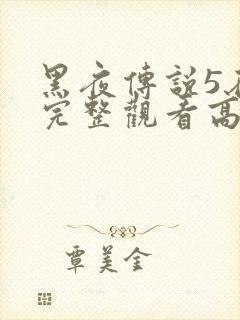 黑夜傳說5
完整觀看高
覃美金